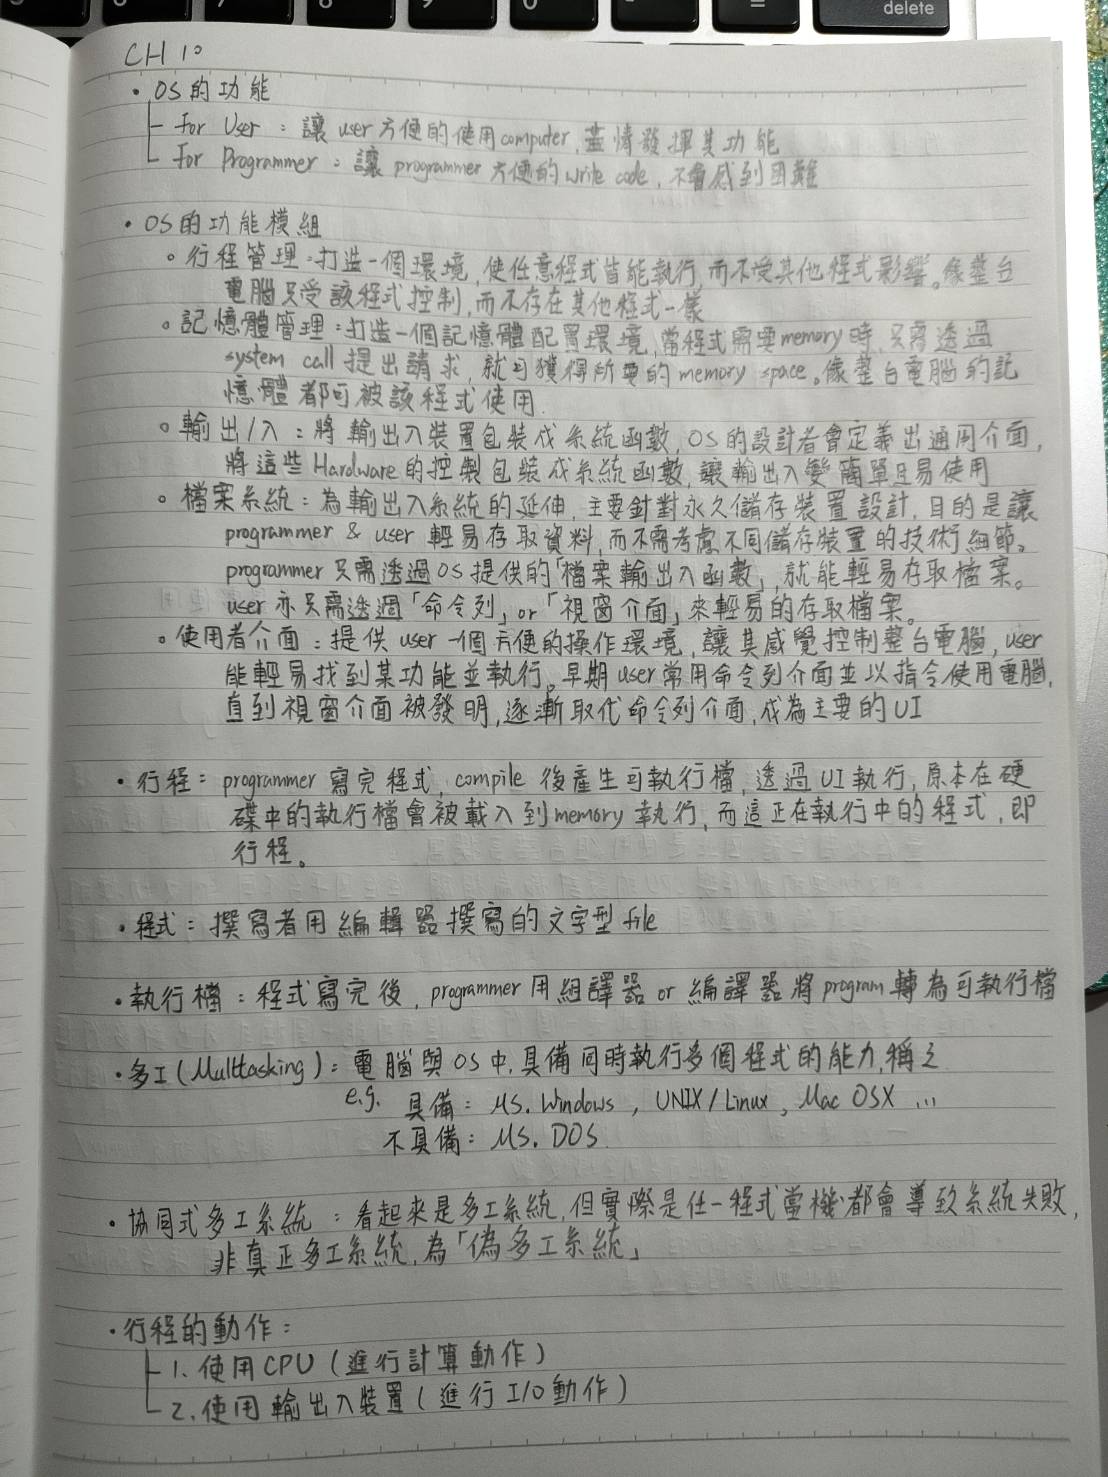 delete
CH 10
• OS的功能
For User：讓user方便的使用computer, 盡情發揮其功能
For Programmer：讓programmer方便的write code, 不會感到困難
• OS的功能模組
◦ 行程管理：打造一個環境, 使任意程式皆能執行, 而不受其他程式影響。像整台
電腦只受該程式控制, 而不存在其他程式一樣
◦ 記憶體管理：打造一個記憶體配置環境, 當程式需要memory時, 只需透過
system call 提出請求, 就可獲得所要的memory space。像整台電腦的記
憶體都可被該程式使用.
◦ 輸出/入：將輸出入裝置包裝成系統函數, OS的設計者會定義出通用介面,
將這些Hardware的控製包裝成系統函數, 讓輸出入變簡單且易使用
◦ 檔案系統：為輸出入系統的延伸, 主要針對永久儲存裝置設計, 目的是讓
programmer & user 輕易存取資料, 而不需考慮不同儲存裝置的技術細節。
programmer 只需透過OS提供的「檔案輸出入函數」, 就能輕易存取檔案。
user 亦只需透過「命令列」or「視窗介面」來輕易的存取檔案。
◦ 使用者介面：提供user 一個方便的操作環境, 讓其感覺控制整台電腦, user
能輕易找到某功能並執行。早期user常用命令列介面並以指令使用電腦,
直到視窗介面被發明, 逐漸取代命令列介面, 成為主要的UI
• 行程：programmer 寫完程式, compile 後產生可執行檔, 透過UI執行, 原本在硬
碟中的執行檔會被載入到memory 執行, 而這正在執行中的程式, 即
行程。
• 程式：撰寫者用編輯器撰寫的文字型file
• 執行檔：程式寫完後, programmer用組譯器 or 編譯器將program轉為可執行檔
• 多工(Multtasking)：電腦與OS中, 具備同時執行多個程式的能力, 稱之
e.g. 具備：MS. Windows, UNIX/Linux, Mac OSX ...
不具備：MS. DOS.
• 協同式多工系統：看起來是多工系統, 但實際是任一程式當機都會導致系統失敗,
非真正多工系統, 為「偽多工系統」
• 行程的動作：
1. 使用CPU (進行計算動作)
2. 使用輸出入裝置 (進行I/O動作)